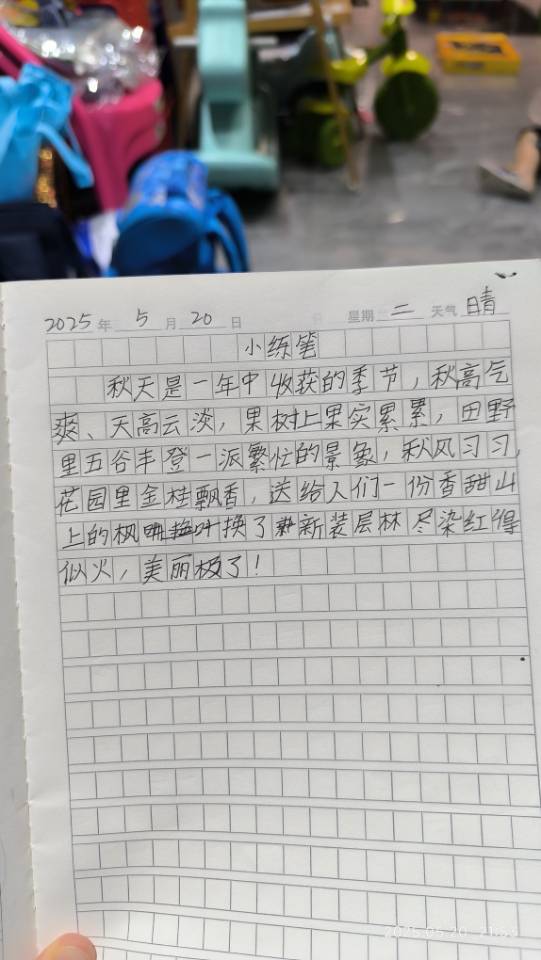 2025年 5月 20日 星期 二 天气 晴
小练笔
秋天是一年中收获的季节，秋高气
爽、天高云淡，果树上果实累累，田野
里五谷丰登一派繁忙的景象，秋风习习，
花园里金桂飘香，送给人们一份香甜山
上的枫叶换了新装层林尽染红得
似火，美丽极了！
2025.05.20